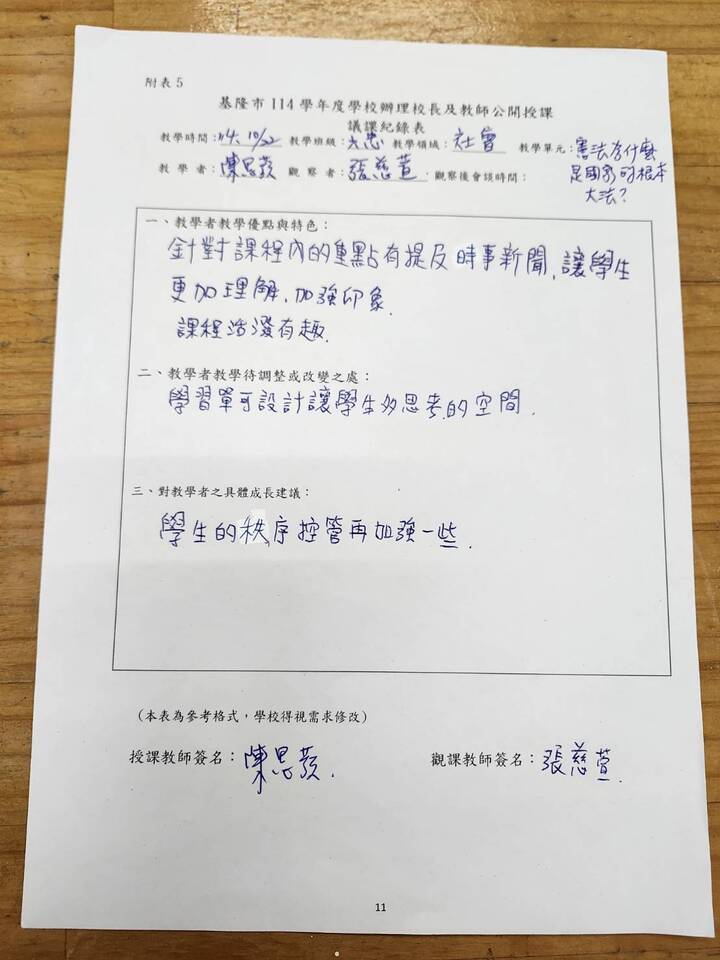 附表 5
基隆市 114 學年度學校辦理校長及教師公開授課
議課紀錄表
教學時間：114. 10/22 教學班級：六忠 教學領域：社會 教學單元：憲法為什麼
是國家的根本
大法？
教學者：陳思蘋 觀察者：張慈萱 觀察後會談時間：
一、教學者教學優點與特色：
針對課程內的重點有提及時事新聞，讓學生
更加理解、加強印象.
課程活潑有趣.
二、教學者教學待調整或改變之處：
學習單可設計讓學生多思考的空間.
三、對教學者之具體成長建議：
學生的秩序控管再加強一些.
（本表為參考格式，學校得視需求修改）
授課教師簽名：陳思蘋. 觀課教師簽名：張慈萱.
11